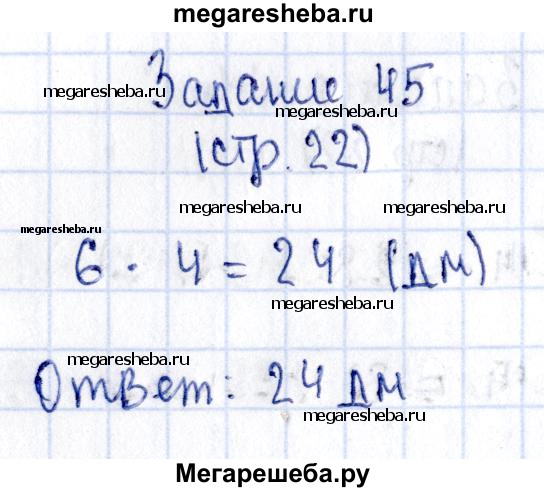 megaresheba.ru
Задание 45
megaresheba.ru megaresheba.ru
(стр. 22)
megaresheba.ru megaresheba.ru
megaresheba.ru
6 · 4 = 24 (дм)
megaresheba.ru
megaresheba.ru
Ответ: 24 дм
megaresheba.ru
Мегарешеба.ру